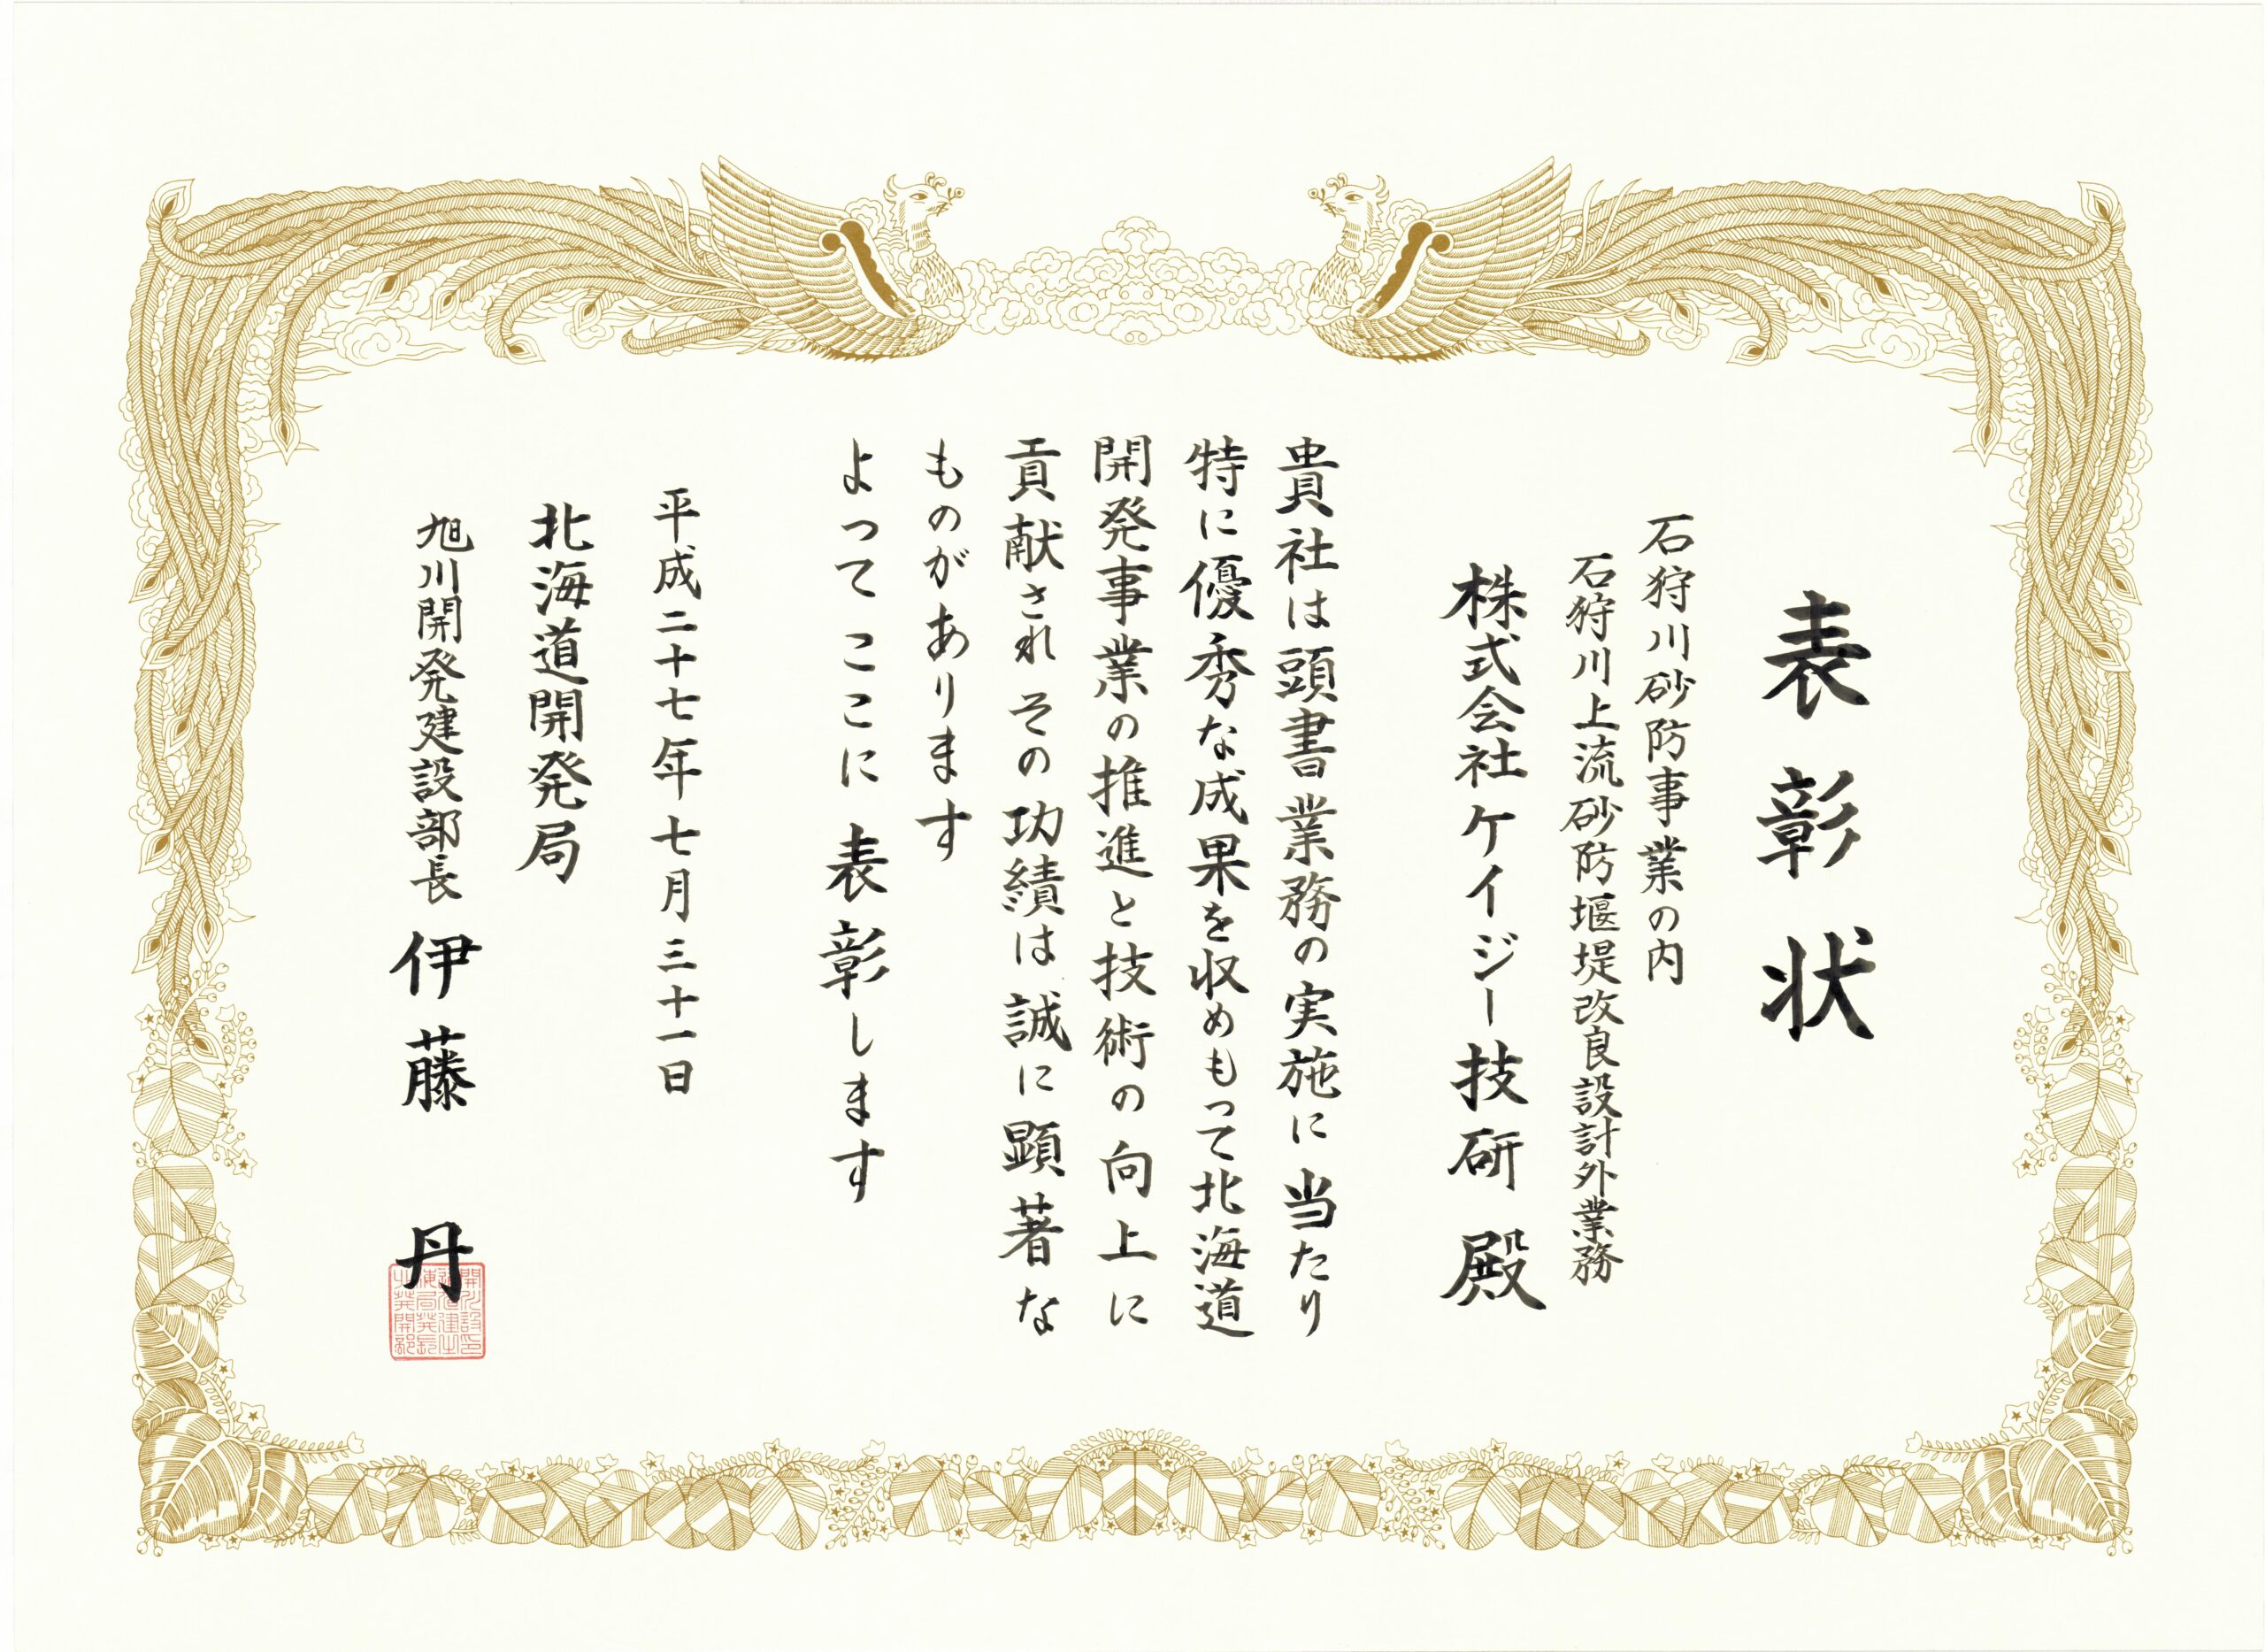 表彰状
石狩川砂防事業の内
石狩川上流砂防堰堤改良設計外業務
株式会社ケイジー技研 殿
貴社は頭書業務の実施に当たり
特に優秀な成果を収めもって北海道
開発事業の推進と技術の向上に
貢献されその功績は誠に顕著な
ものがあります
よってここに表彰します
平成二十七年七月三十一日
北海道開発局
旭川開発建設部長 伊藤 丹